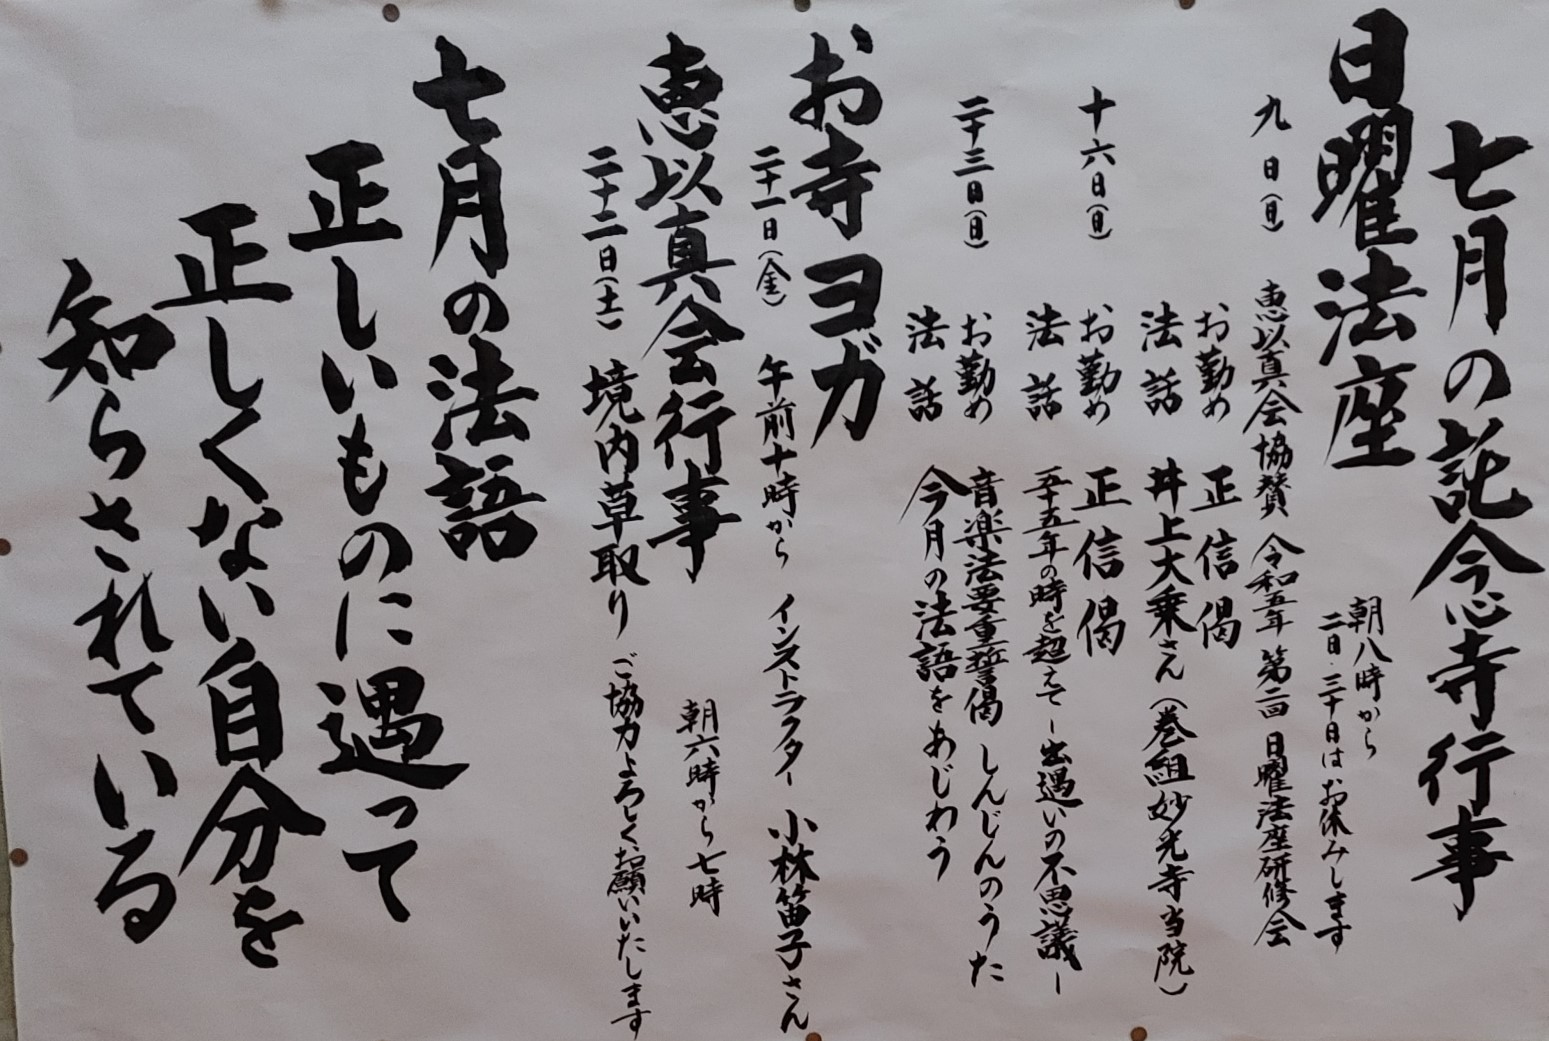 七月の託念寺行事
日曜法座
朝八時から
二日・三十日はお休みします
九日(日) 恵以真会協賛 令和五年 第二回 日曜法座研修会
お勤め 正信偈
法話 井上大乗さん(巻組妙光寺当院)
十六日(日) お勤め 正信偈
法話 五十五年の時を超えて ー出遇いの不思議ー
二十三日(日) お勤め 音楽法要重誓偈 しんじんのうた
法話 今月の法語をあじわう
お寺ヨガ
二十一日(金) 午前十時から インストラクター 小林笛子さん
恵以真会行事
朝六時から七時
二十二日(土) 境内草取り ご協力よろしくお願いいたします
七月の法語
正しいものに遇って
正しくない自分を
知らされている